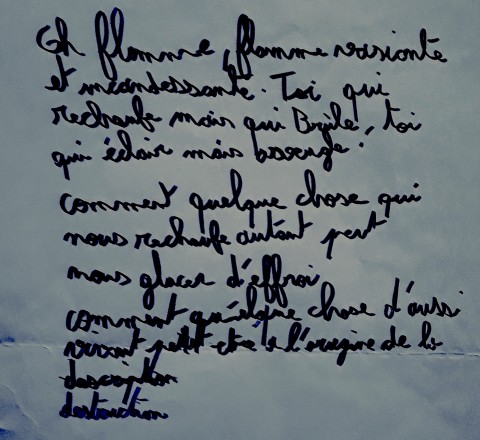 Oh flamme, flamme voissante
et incandessante. Toi qui
rechaufe mais qui Brûle, toi
qui éclair mais aveugle.
comment quelque chose qui
nous rechaufe autant peut
nous glacer d'effroi
comment quelque chose d'aussi
petit et à l'origine de la
destruction